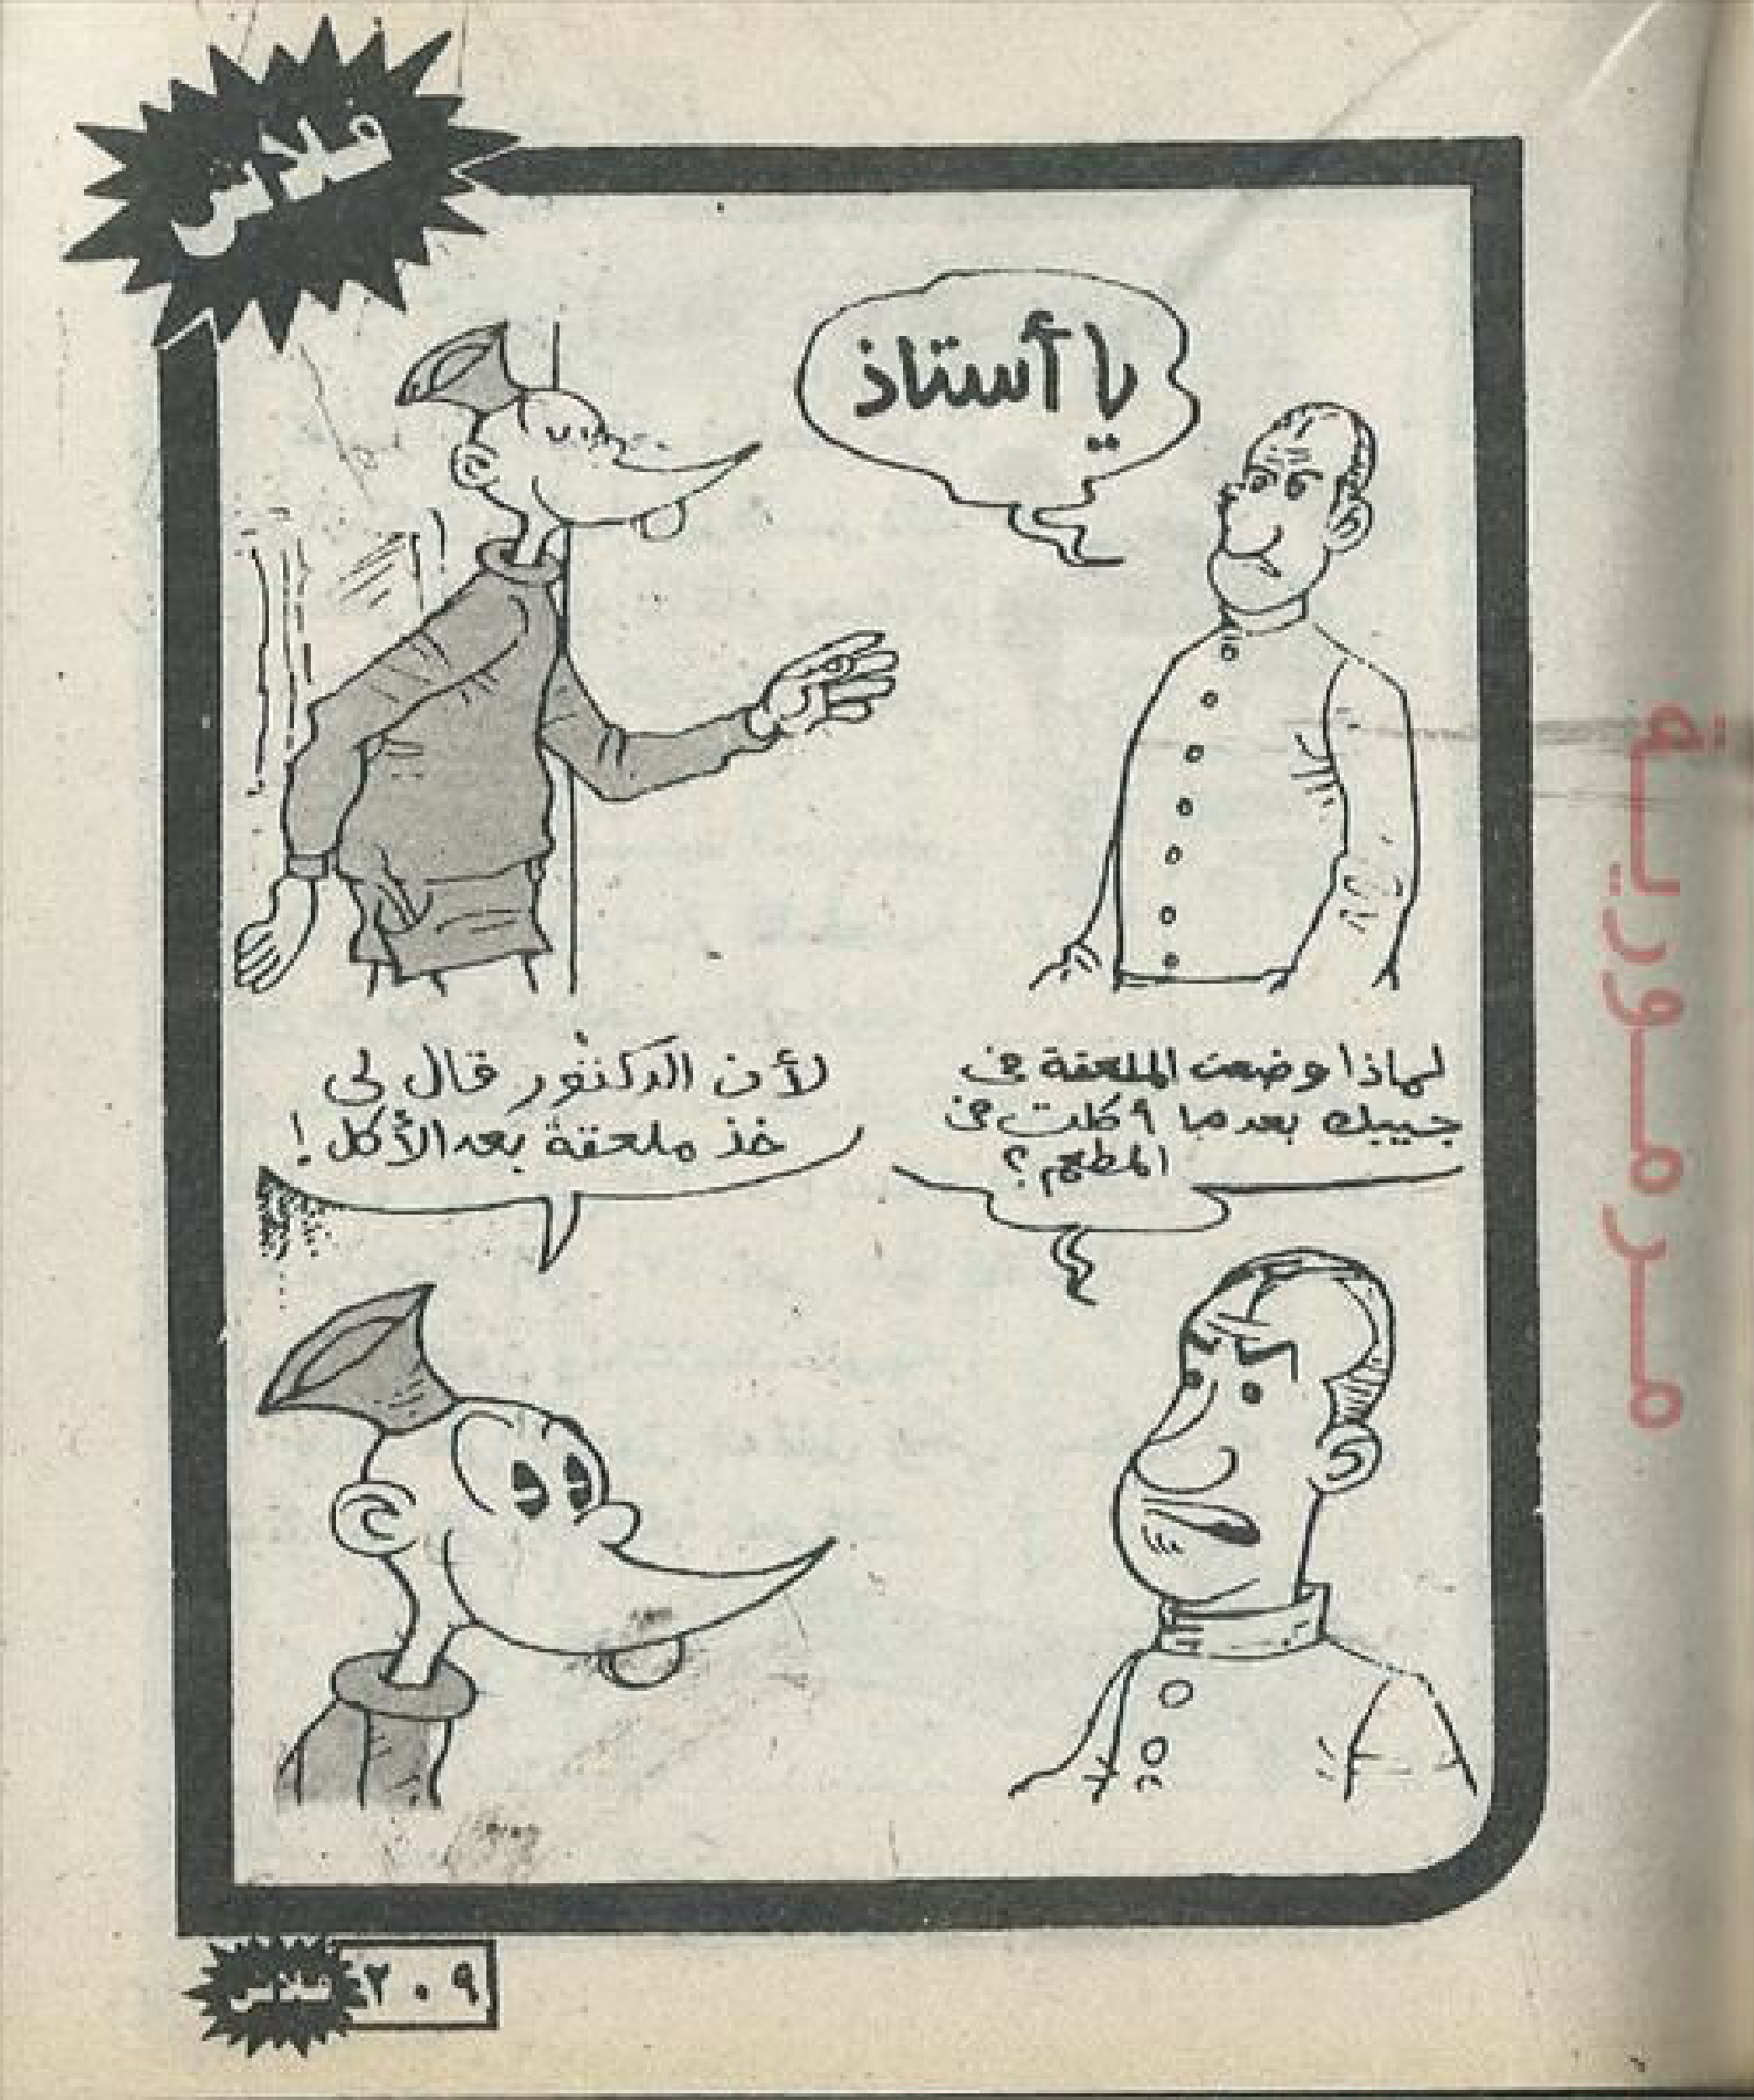 فلاش
يا أستاذ
لماذا وضعت الملعقة في
جيبك بعدما أكلت في
المطعم؟
لأن الدكتور قال لى
خذ ملعقة بعد الأكل!
مرمورية
فلاش ٢٠٩